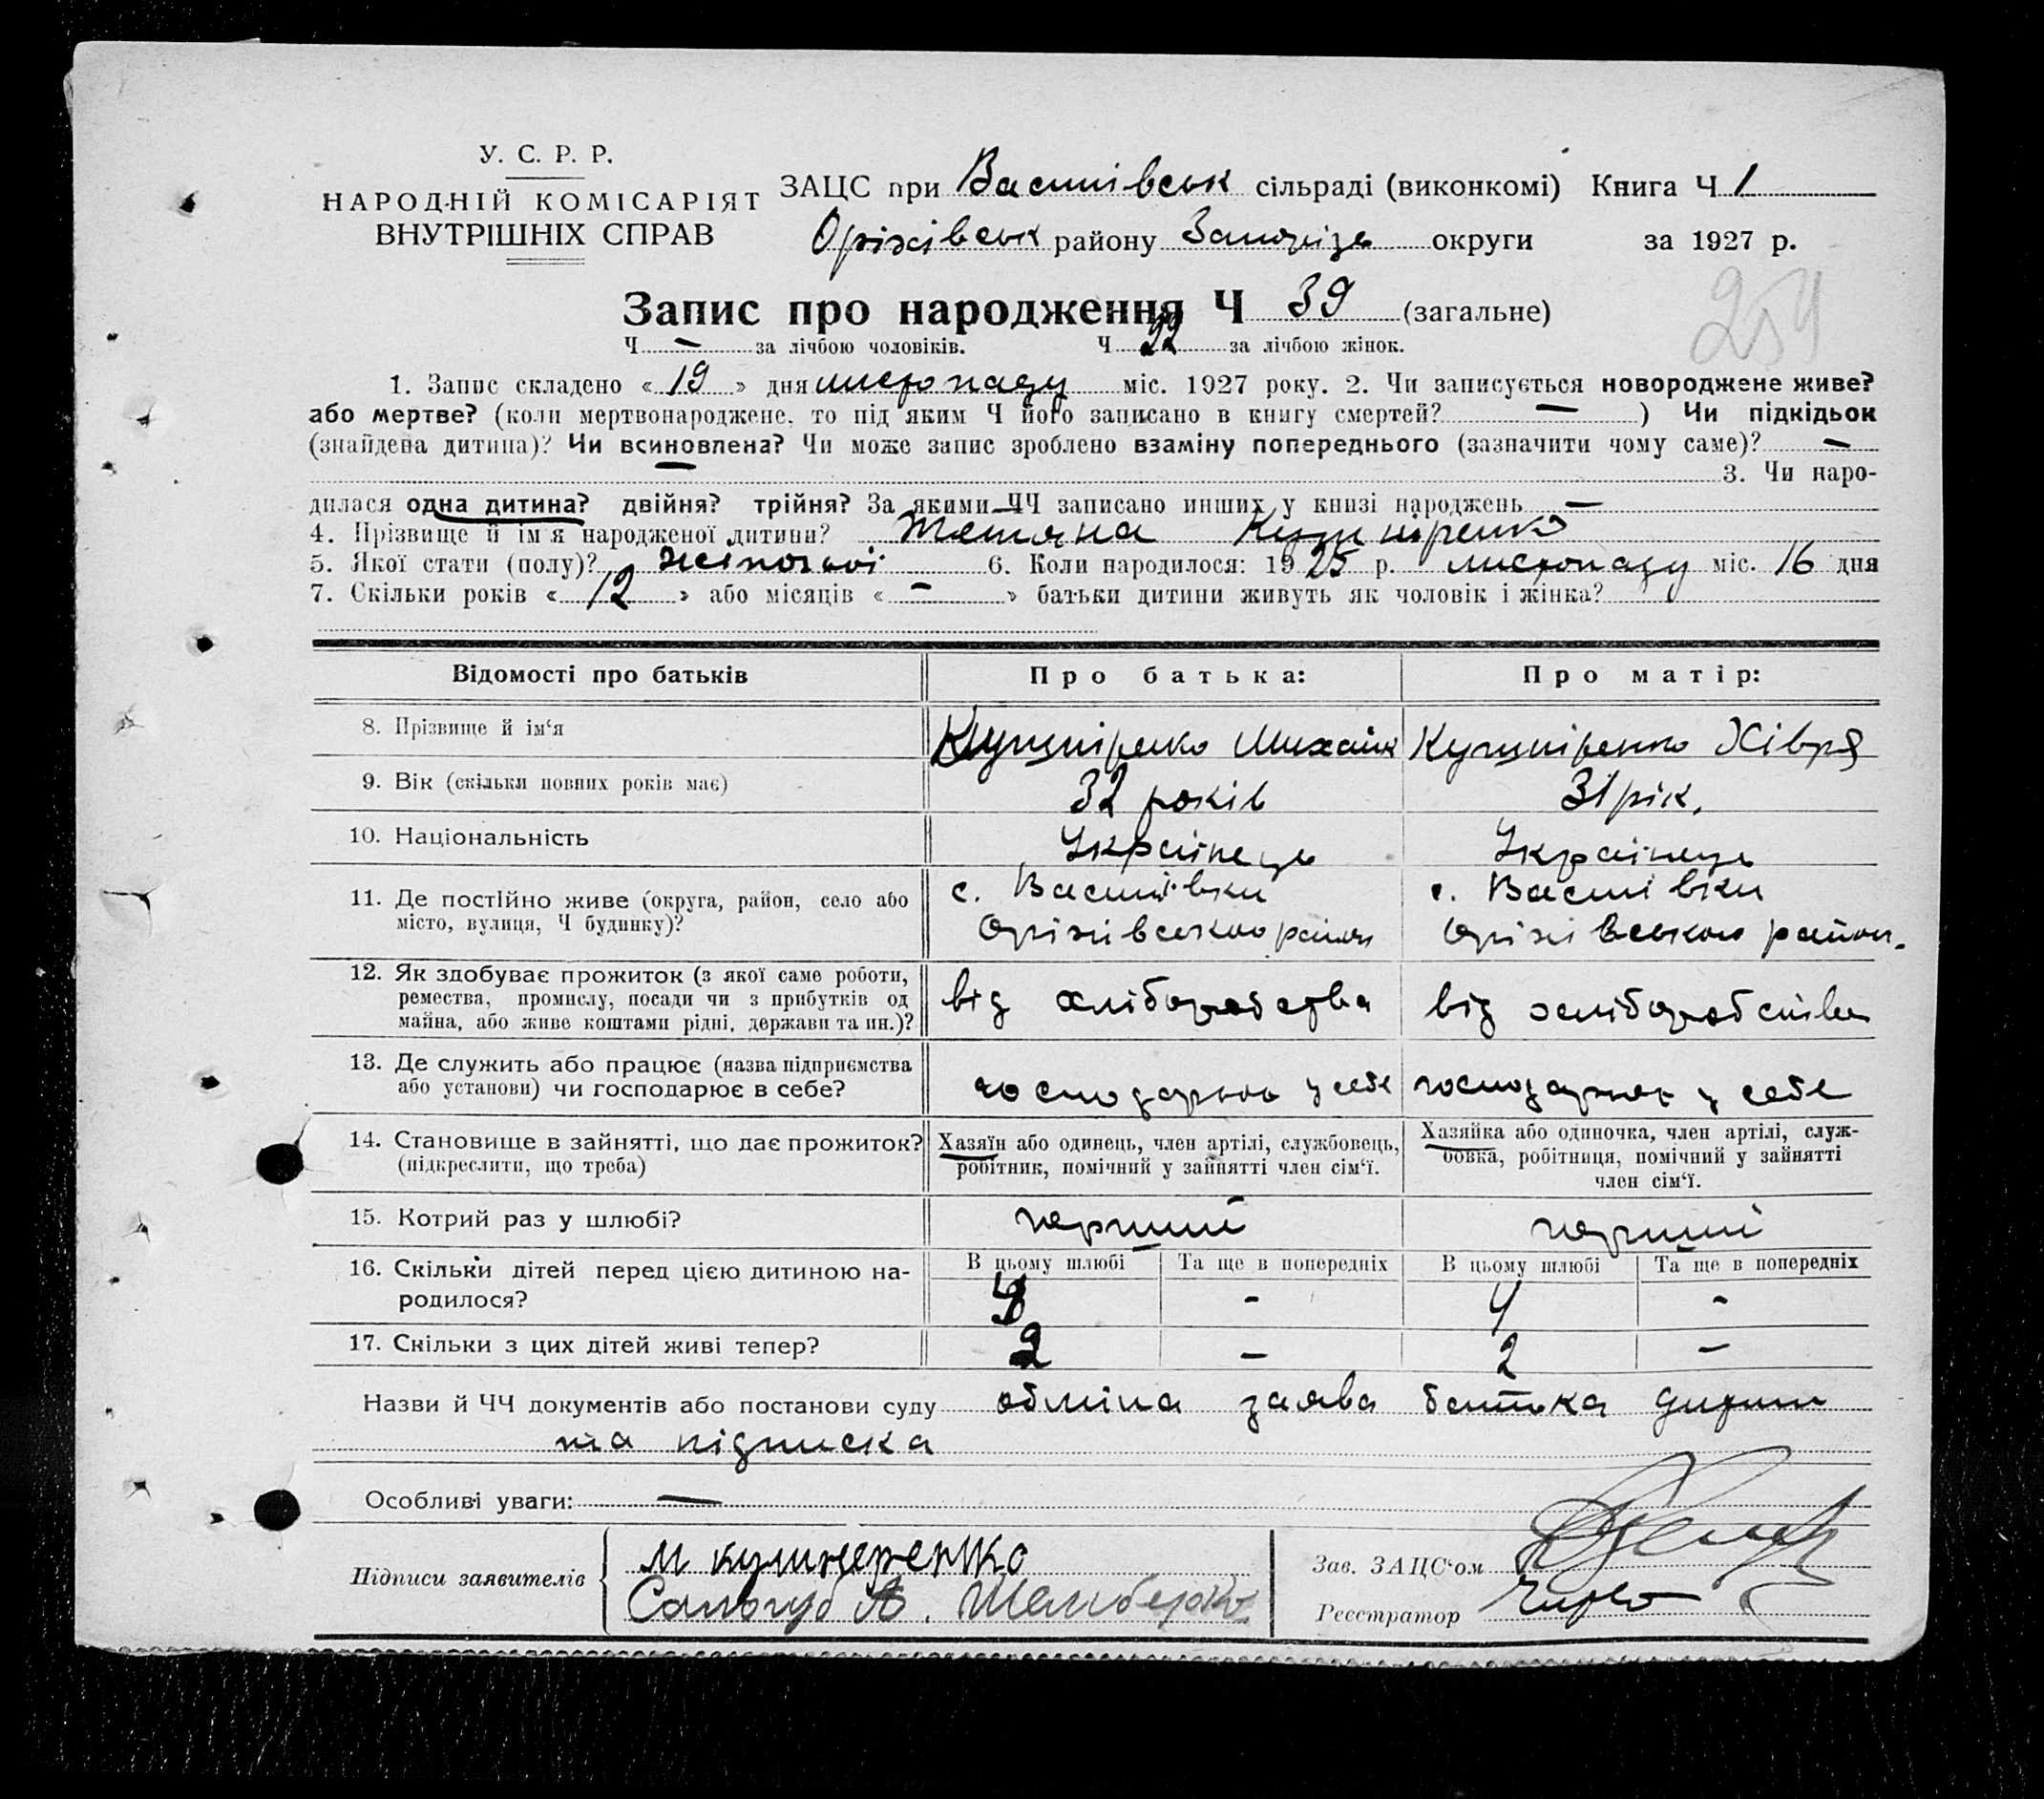 У. С. Р. Р.
НАРОДНІЙ КОМІСАРІЯТ
ВНУТРІШНІХ СПРАВ
ЗАЦС при Василівськ сільраді (виконкомі) Книга Ч 1
Оріхівськ району Запорізь округи за 1927 р.
254
Запис про народження Ч 39 (загальне)
Ч — за лічбою чоловіків. Ч 22 за лічбою жінок.
1. Запис складено « 19 » дня листопаду міс. 1927 року. 2. Чи записується новороджене живе?
або мертве? (коли мертвонароджене, то під яким Ч його записано в книгу смертей? — ) Чи підкідьок
(знайдена дитина)? Чи всиновлена? Чи може запис зроблено взаміну попереднього (зазначити чому саме)? —
— 3. Чи наро-
дилася одна дитина? двійня? трійня? За якими ЧЧ записано инших у книзі народжень —
4. Прізвище й ім'я народженої дитини? Тетяна Кушніренко
5. Якої стати (полу)? жіночої 6. Коли народилося: 1925 р. листопаду міс. 16 дня
7. Скільки років « 12 » або місяців « — » батьки дитини живуть як чоловік і жінка?
Відомості про батьків Про батька: Про матір:
8. Прізвище й ім'я Кушніренко Михайло Кушніренко Хівря
9. Вік (скільки повних років має) 32 років 31 рік.
10. Національність Українець Українець
11. Де постійно живе (округа, район, село або с. Василівки с. Василівки
місто, вулиця, Ч будинку)? Оріхівського район Оріхівського район.
12. Як здобуває прожиток (з якої саме роботи,
ремества, промислу, посади чи з прибутків од від хліборобства від хліборобства
майна, або живе коштами рідні, держави та ин.)?
13. Де служить або працює (назва підприємства
або установи) чи господарює в себе? господарює у себе господарює у себе
14. Становище в зайнятті, що дає прожиток? Хазяїн або одинець, член артілі, службовець, Хазяйка або одиночка, член артілі, служ-
(підкреслити, що треба) робітник, помічний у зайнятті член сім'ї. бовка, робітниця, помічний у зайнятті
член сім'ї.
15. Котрий раз у шлюбі? перший перший
16. Скільки дітей перед цією дитиною на- В цьому шлюбі Та ще в попередніх В цьому шлюбі Та ще в попередніх
родилося? 4 - 4 -
17. Скільки з цих дітей живі тепер? 2 — 2 —
Назви й ЧЧ документів або постанови суду обміна заява батька дитини
та підписка
Особливі уваги: —
Підписи заявителів М кушнеренко
Сологуб А.
Зав. ЗАЦС'ом
Реєстратор